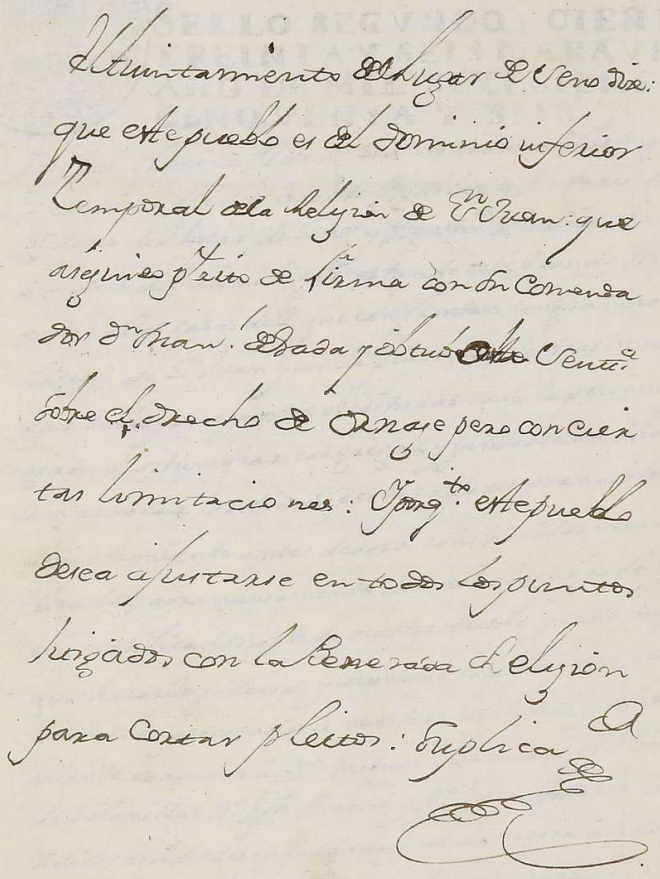 El Aiuntamiento del lugar de Seno dize:
que este pueblo es del dominio inferior
Temporal dela Religion de Sn Juan: que
a siguieo pleito de firma con su Comenda
dor dn Juan de Bada y obtubo Sentta
sobre el drecho de Ornage pero con cier
tas limitaciones: Y porqto este pueblo
desea ajustarse en todos los puntos
lurgados con la Venerada Religion
para Cortar pleitos: Suplica A